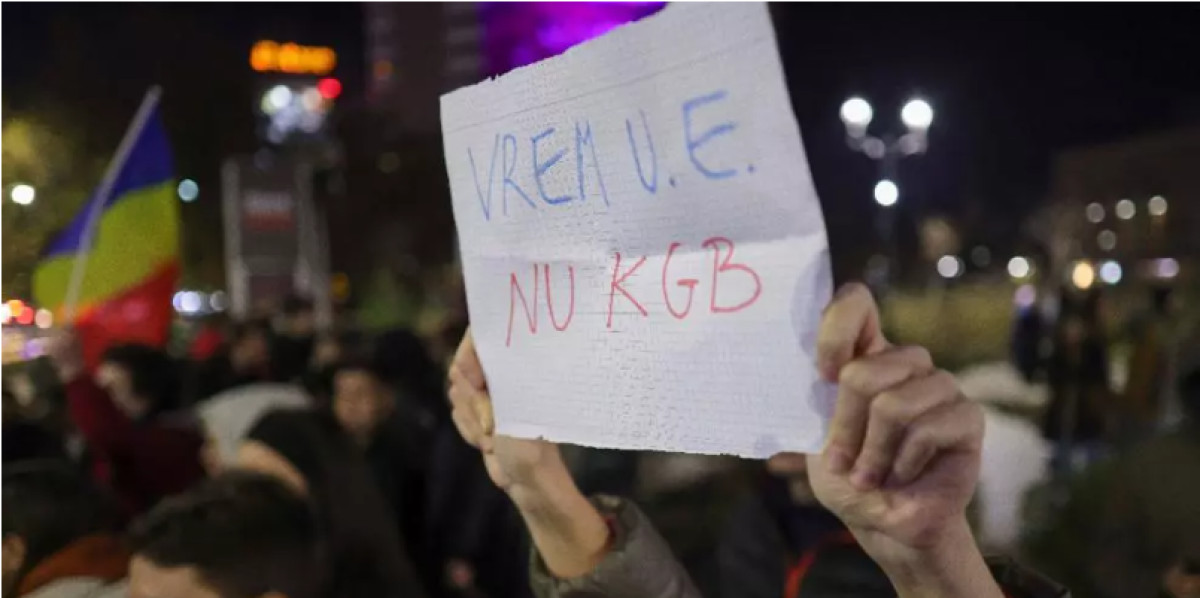 VREM U.E.
NU KGB